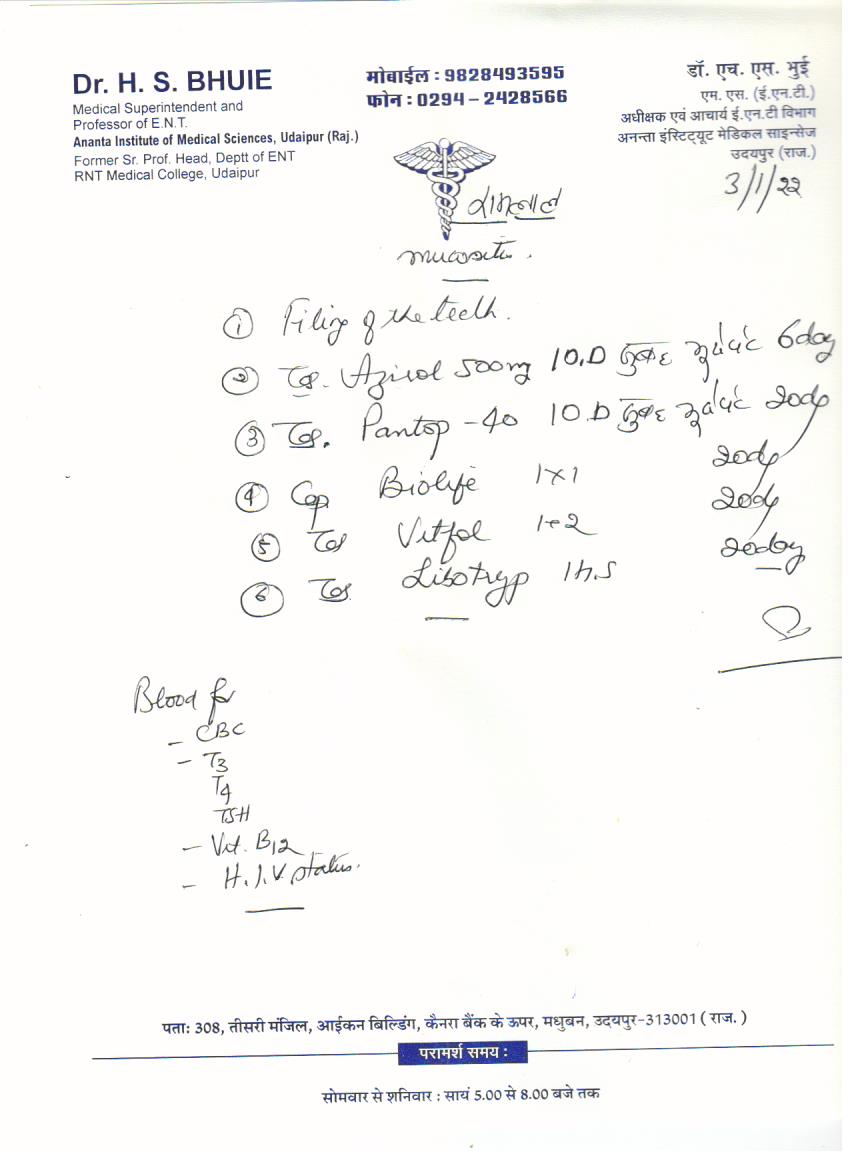 Dr. H. S. BHUIE
Medical Superintendent and
Professor of E.N.T.
Ananta Institute of Medical Sciences, Udaipur (Raj.)
Former Sr. Prof. Head, Deptt of ENT
RNT Medical College, Udaipur
मोबाईल : 9828493595
फोन : 0294 – 2428566
डॉ. एच. एस. भुई
एम. एस. (ई.एन.टी.)
अधीक्षक एवं आचार्य ई.एन.टी विभाग
अनन्ता इंस्टिट्यूट मेडिकल साइन्सेज
उदयपुर (राज.)
3/1/22
mucositis.
1 Filing of the teeth.
2 Tab. Azirol 500mg 1 O.D 6day
3 Tab. Pantop - 40 1 O.D 20day
4 Cap Biolife 1x1 20day
5 Tab Vitfol 1+2 20day
6 Tab Libotryp 1 h.s 20day
Blood for
- CBC
- T3
T4
TSH
- Vit. B12
- H.I.V. status.
पता: 308, तीसरी मंजिल, आईकन बिल्डिंग, कैनरा बैंक के ऊपर, मधुबन, उदयपुर-313001 ( राज. )
परामर्श समय :
सोमवार से शनिवार : सायं 5.00 से 8.00 बजे तक